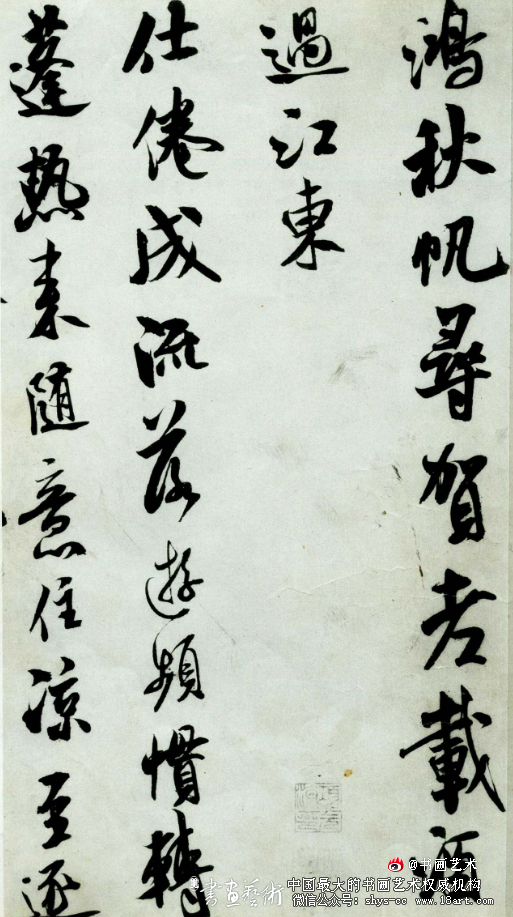 鴻秋帆尋賀老載酒
過江東
仕倦成流落遊頻慣轉
蓬熱来随意住涼至逐
@书画艺术
書畫藝術
中国最大的书画艺术权威机构
微信公众号：shys-cc www.18art.com